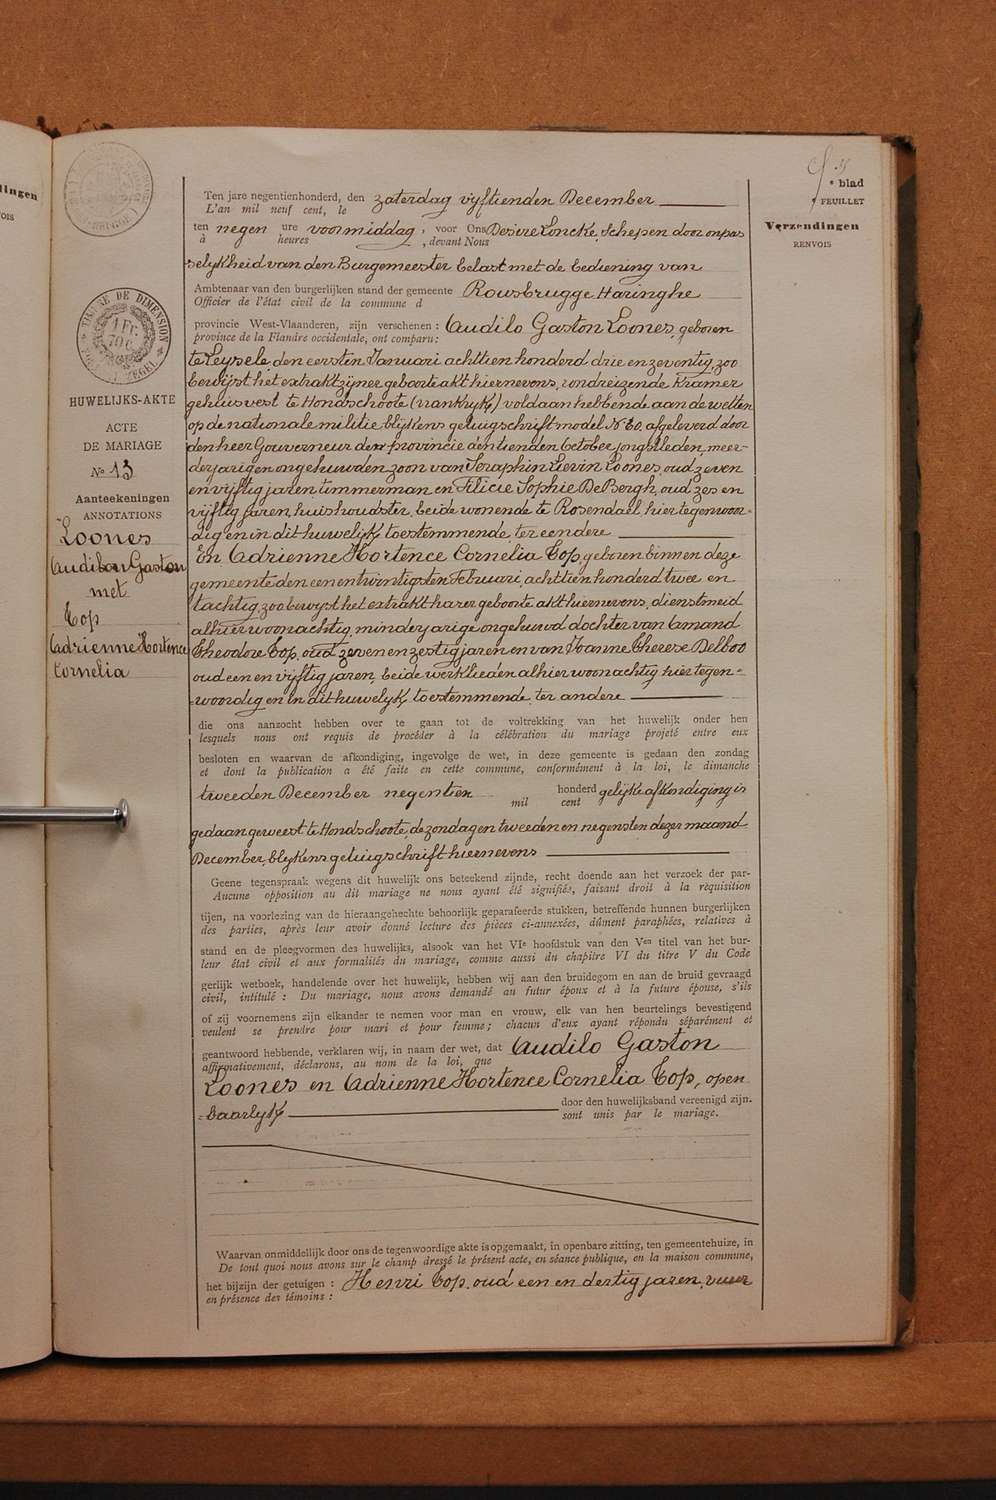 dingen
OIS
5
blad
FEUILLET
Verzendingen
RENVOIS
TIMBRE DE DIMENSION
1 FR.
70 C.
ZEGEL
HUWELIJKS-AKTE
ACTE
DE MARIAGE
No 13
Aanteekeningen
ANNOTATIONS
Loones
Audilon Gaston
met
Top
Adrienne Hortence
Cornelia
Ten jare negentienhonderd, den zaterdag vyftienden December
L'an mil neuf cent, le
ten negen ure voormiddag, voor Ons Desiré Loncke, Schepen door onpas
à heures , devant Nous
selykheid van den Burgemeester belast met de bediening van
Ambtenaar van den burgerlijken stand der gemeente Rousbrugge Haringhe
Officier de l'état civil de la commune d
provincie West-Vlaanderen, zijn verschenen : Audilo Gaston Loones, geboren
province de la Flandre occidentale, ont comparu:
te Leysele den eersten Januari achttien honderd drie en zeventig, zoo
bewyst het extrakt zyner geboorte akt hiernevens, rondreizende Kramer
gehuisvest te Hondschoote (vrankryk) voldaan hebbende aan de wetten
op de nationale militie blykens getuigschrift model No 20, afgeleverd door
den heer Gouverneur der provincie den tienden October jongstleden, meer-
derjarigen ongehuwden zoon van Seraphin Lievin Loones, oud zeven
en vyftig jaren, timmerman en Filicie Sophie De Bergh, oud zes en
vyftig jaren, huishoudster, beide wonende te Rosendael, hier tegenwoor-
dig en in dit huwelyk toestemmende, ter eendere
En Adrienne Hortence Cornelia Top, geboren binnen deze
gemeente den een en twintigsten Februari, achttien honderd twee en
tachtig, zoo bewyst het extrakt harer geboorte akt hiernevens, dienstmeid
alhier woonachtig, minderjarige ongehuwd dochter van Amand
Theodore Top, oud zeven en zestig jaren en van Joanne Therese Delboo
oud een en vyftig jaren, beide werklieden alhier woonachtig hier tegen-
woordig en in dit huwelyk toestemmende, ter andere
die ons aanzocht hebben over te gaan tot de voltrekking van het huwelijk onder hen
lesquels nous ont requis de procéder à la célébration du mariage projeté entre eux
besloten en waarvan de afkondiging, ingevolge de wet, in deze gemeente is gedaan den zondag
et dont la publication a été faite en cette commune, conformément à la loi, le dimanche
tweeden December negentien honderd gelyke afkondiging is
mil cent
gedaan geweest te Hondschoote, de zondagen tweeden en negensten dezer maand
December, blykens getuigschrift hiernevens
Geene tegenspraak wegens dit huwelijk ons beteekend zijnde, recht doende aan het verzoek der par-
Aucune opposition au dit mariage ne nous ayant été signifiés, faisant droit à la réquisition
tijen, na voorlezing van de hieraangehechte behoorlijk geparafeerde stukken, betreffende hunnen burgerlijken
des parties, après leur avoir donné lecture des pièces ci-annexées, dûment paraphées, relatives à
stand en de pleegvormen des huwelijks, alsook van het VIe hoofdstuk van den Ven titel van het bur-
leur état civil et aux formalités du mariage, comme aussi du chapitre VI du titre V du Code
gerlijk wetboek, handelende over het huwelijk, hebben wij aan den bruidegom en aan de bruid gevraagd
civil, intitulé : Du mariage, nous avons demandé au futur époux et à la future épouse, s'ils
of zij voornemens zijn elkander te nemen voor man en vrouw, elk van hen beurtelings bevestigend
veulent se prendre pour mari et pour femme ; chacun d'eux ayant répondu séparément et
geantwoord hebbende, verklaren wij, in naam der wet, dat Audilo Gaston
affirmativement, déclarons, au nom de la loi, que
Loones en Adrienne Hortence Cornelia Top, open
baarlyk door den huwelijksband vereenigd zijn.
sont unis par le mariage.
Waarvan onmiddellijk door ons de tegenwoordige akte is opgemaakt, in openbare zitting, ten gemeentehuize, in
De tout quoi nous avons sur le champ dressé le présent acte, en séance publique, en la maison commune,
het bijzijn der getuigen : Henri Top, oud een en dertig jaren, vuur
en présence des témoins :